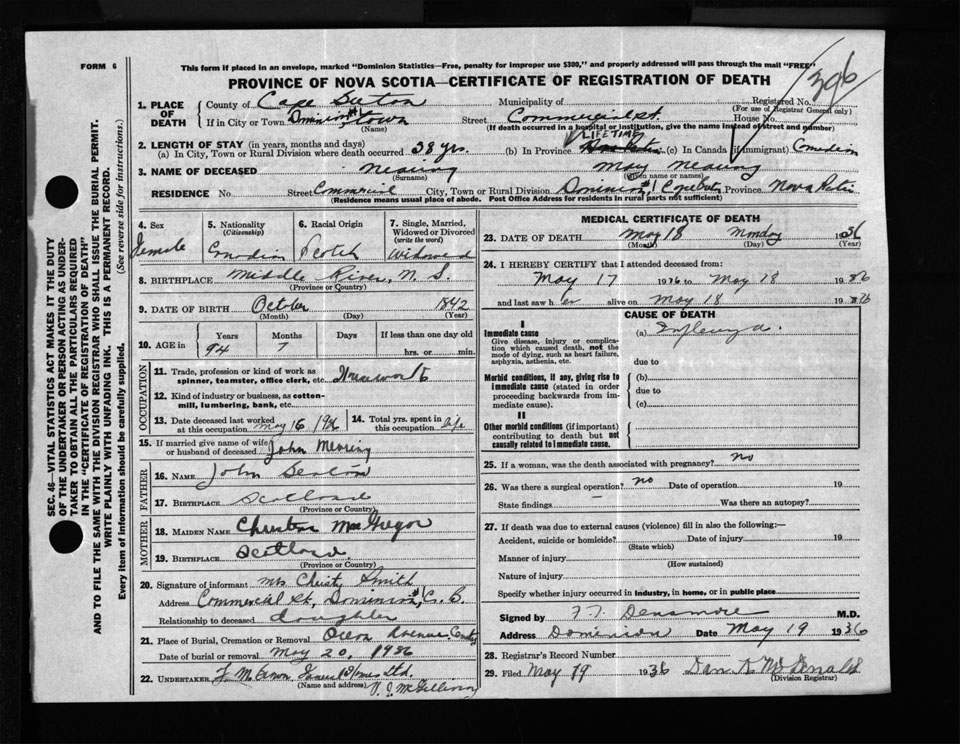 FORM 6
This form if placed in an envelope, marked "Dominion Statistics—Free, penalty for improper use $300," and properly addressed will pass through the mail "FREE"
PROVINCE OF NOVA SCOTIA—CERTIFICATE OF REGISTRATION OF DEATH
396
SEC. 46—VITAL STATISTICS ACT MAKES IT THE DUTY
OF THE UNDERTAKER OR PERSON ACTING AS UNDER-
TAKER TO OBTAIN ALL THE PARTICULARS REQUIRED
IN THE "CERTIFICATE OF REGISTRATION OF DEATH"
AND TO FILE THE SAME WITH THE DIVISION REGISTRAR WHO SHALL ISSUE THE BURIAL PERMIT.
WRITE PLAINLY WITH UNFADING INK. THIS IS A PERMANENT RECORD.
Every item of information should be carefully supplied. (See reverse side for instructions.)
1. PLACE OF DEATH County of Cape Breton Municipality of Registered No.
(For use of Registrar General only)
If in City or Town Dominion #1 town Street Commercial St. House No.
(Name) (If death occurred in a hospital or institution, give the name instead of street and number)
2. LENGTH OF STAY (in years, months and days) LIFETIME
(a) In City, Town or Rural Division where death occurred 38 yrs. (b) In Province (c) In Canada (if immigrant) Canadian
3. NAME OF DECEASED May
(Surname) (Given name or names)
RESIDENCE No Street Commercial City, Town or Rural Division Dominion #1 Cape Bret Province Nova Scotia
(Residence means usual place of abode. Post Office Address for residents in rural parts not sufficient)
4. Sex Female
5. Nationality (Citizenship) Canadian
6. Racial Origin Scotch
7. Single, Married, Widowed or Divorced (write the word) Widowed
8. BIRTHPLACE Middle River, N. S.
(Province or Country)
9. DATE OF BIRTH October 1842
(Month) (Day) (Year)
10. AGE in Years 94 Months 7 Days If less than one day old hrs. or min.
OCCUPATION
11. Trade, profession or kind of work as spinner, teamster, office clerk, etc. Housework
12. Kind of industry or business, as cotton-mill, lumbering, bank, etc.
13. Date deceased last worked at this occupation May 16, 1936 14. Total yrs. spent in this occupation life
15. If married give name of wife or husband of deceased John
FATHER
16. NAME John
17. BIRTHPLACE Scotland
(Province or Country)
MOTHER
18. MAIDEN NAME MacGregor
19. BIRTHPLACE Scotland
(Province or Country)
20. Signature of informant Mrs Christy Smith
Address Commercial St, Dominion #1, C. B.
Relationship to deceased daughter
21. Place of Burial, Cremation or Removal Avenue
Date of burial or removal May 20, 1936
22. UNDERTAKER Ltd.
(Name and address) McGillivray
MEDICAL CERTIFICATE OF DEATH
23. DATE OF DEATH May 18 Monday 1936
(Month) (Day) (Year)
24. I HEREBY CERTIFY that I attended deceased from:
May 17 1936 to May 18 1936
and last saw her alive on May 18 1936
CAUSE OF DEATH
I
Immediate cause (a) Influenza.
Give disease, injury or complication which caused death, not the mode of dying, such as heart failure, asphyxia, asthenia, etc.
due to
Morbid conditions, if any, giving rise to immediate cause (stated in order proceeding backwards from immediate cause).
(b)
due to
(c)
II
Other morbid conditions (if important) contributing to death but not causally related to immediate cause.
25. If a woman, was the death associated with pregnancy? no
26. Was there a surgical operation? no Date of operation 19
State findings — Was there an autopsy?
27. If death was due to external causes (violence) fill in also the following:—
Accident, suicide or homicide? Date of injury 19
(State which)
Manner of injury
(How sustained)
Nature of injury
Specify whether injury occurred in industry, in home, or in public place
Signed by F. T. Densmore M.D.
Address Dominion Date May 19 1936
28. Registrar's Record Number
29. Filed May 19 1936 Dan A McDonald
(Division Registrar)